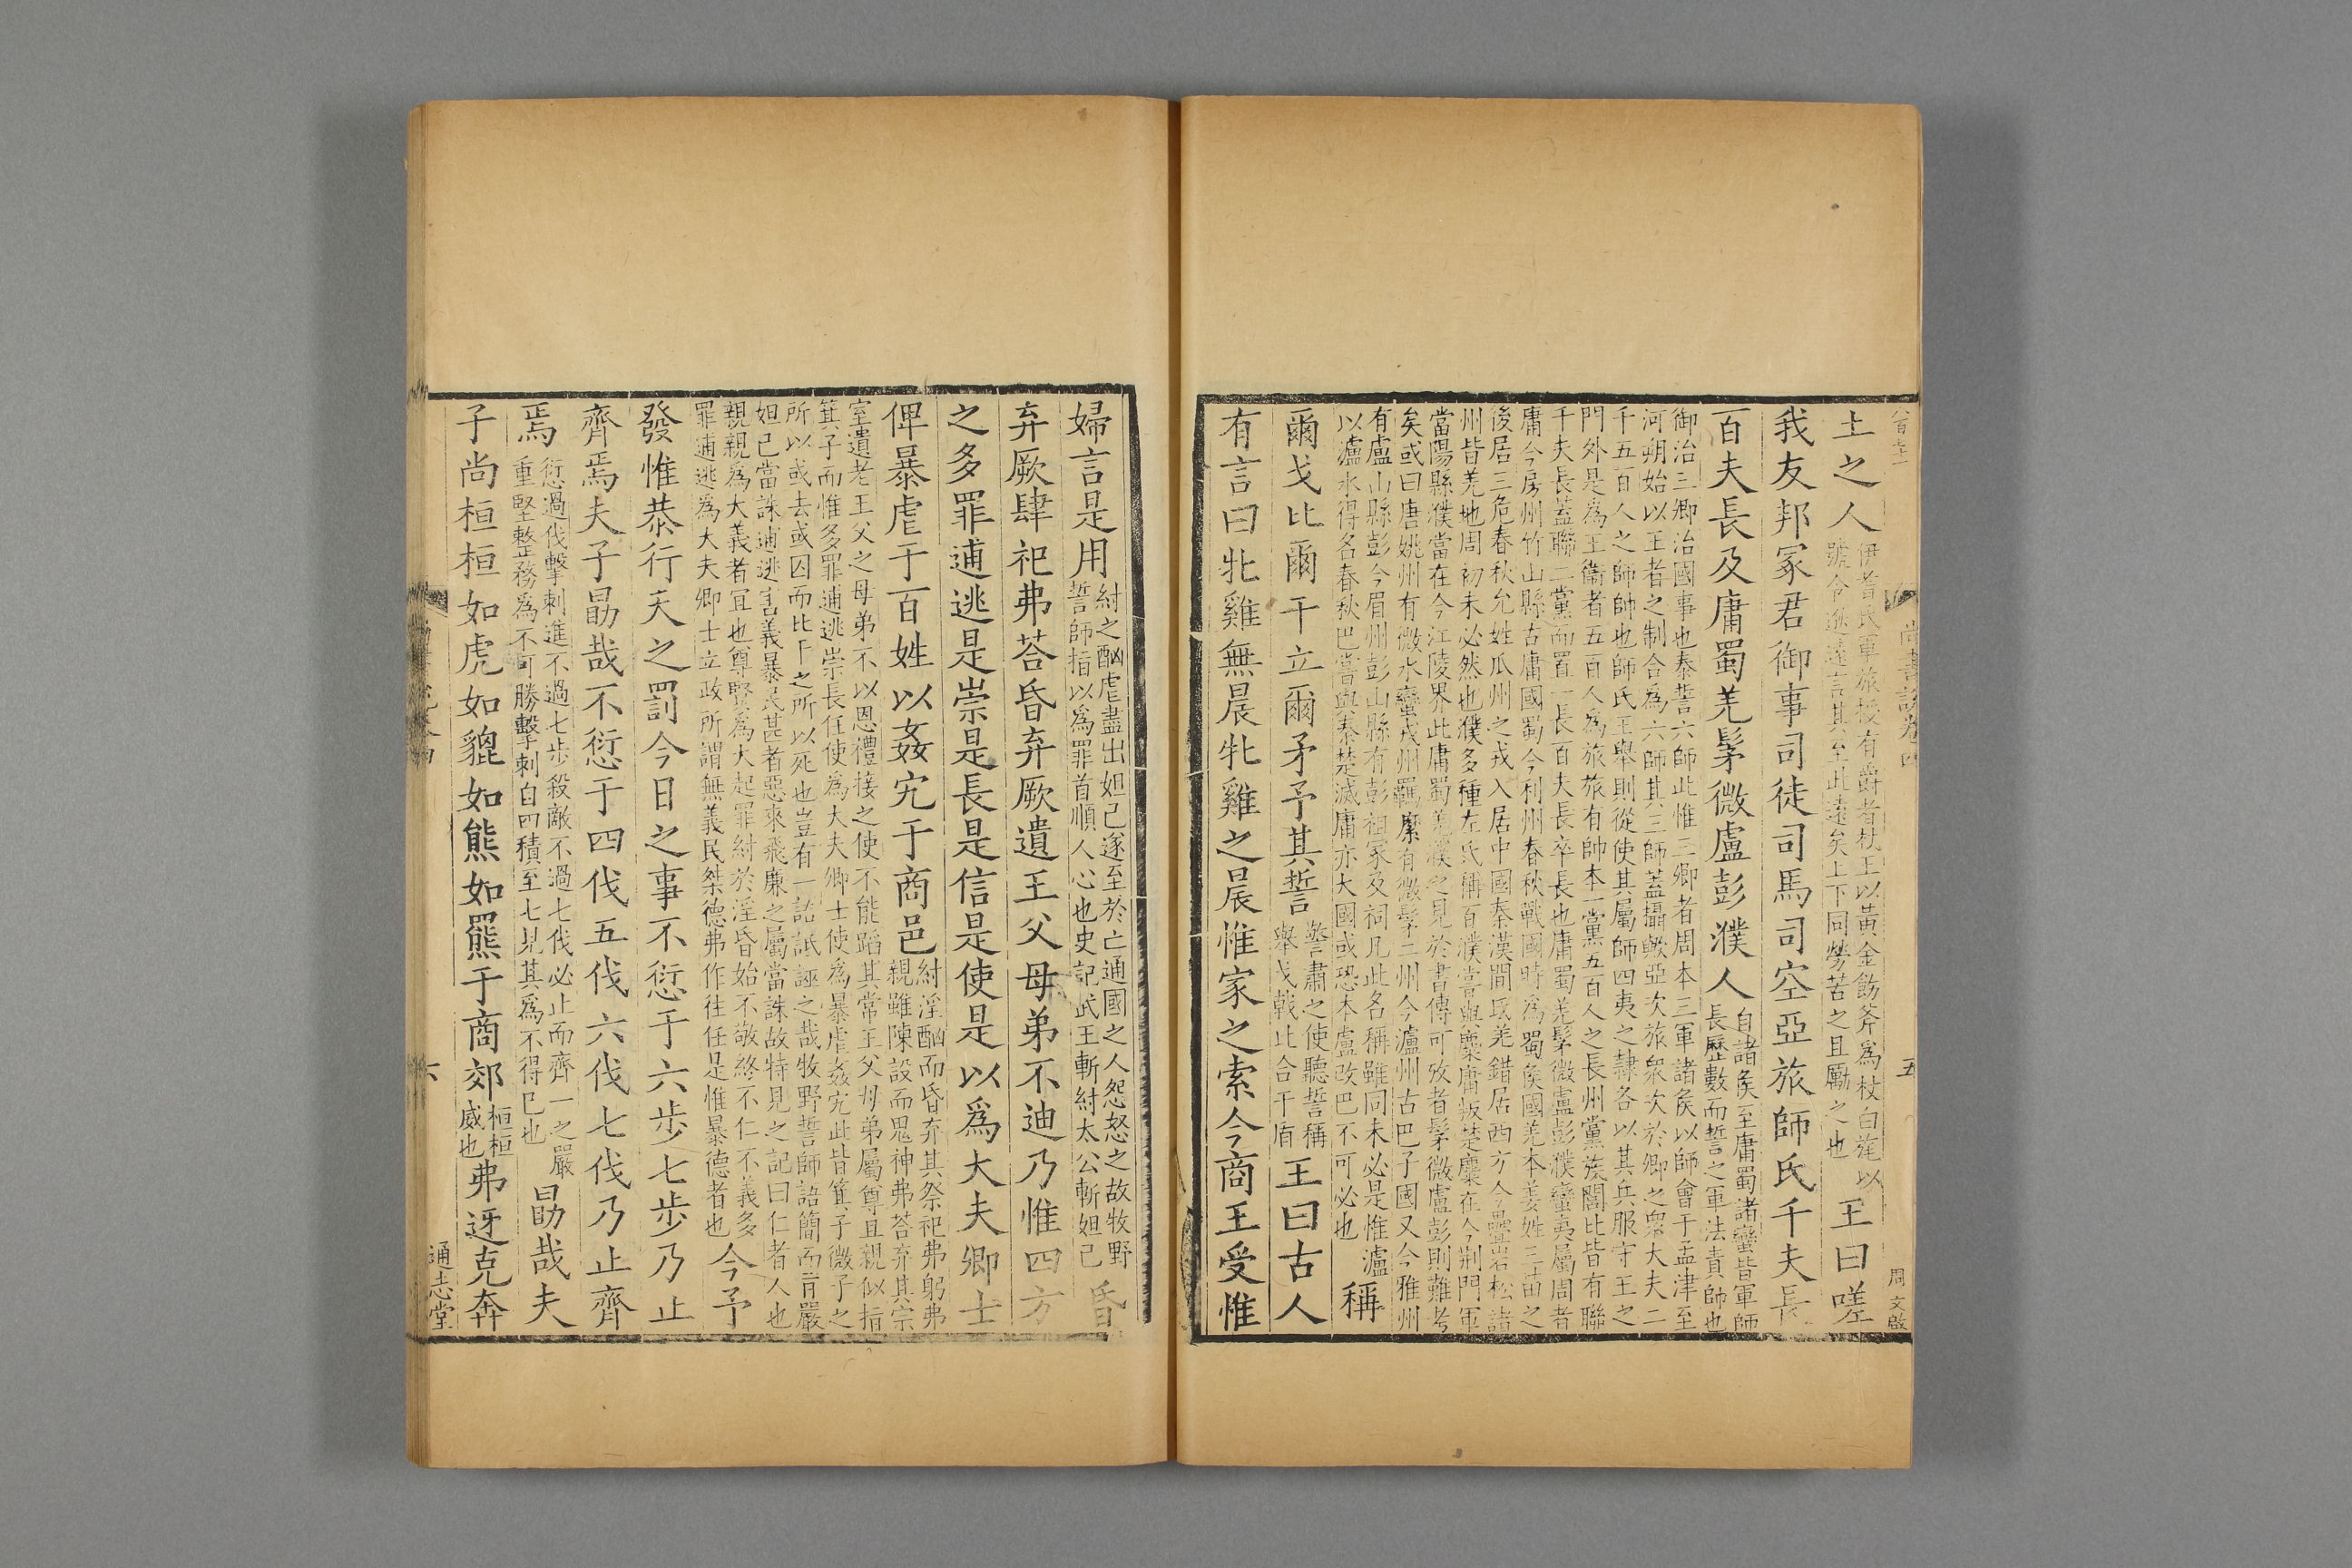 土之人
伊耆氏軍旅授有爵者杖王以黃金飭斧爲杖白旄以
號令逖遠言其至此遠矣上下同勞苦之且勵之也
王曰嗟
我友邦冢君御事司徒司馬司空亞旅師氏千夫長
百夫長及庸蜀羌髳微盧彭濮人
自諸矦至庸蜀諸蠻皆軍師
長歷數而誓之軍法責師也
御治三卿治國事也泰誓六師此惟三卿者周本三軍諸矦以師會于孟津至
河朔始以王者之制合爲六師其三師蓋攝歟亞次旅衆次於卿之衆大夫二
千五百人之師帥也師氏王舉則從使其屬師四夷之隸各以其兵服守王之
門外是爲王衞者五百人爲旅旅有帥本一黨五百人之長州黨族閭比皆有聯
千夫長蓋聯二黨而置一長百夫長卒長也庸蜀羌髳微盧彭濮蠻夷屬周者
庸今房州竹山縣古庸國蜀今利州春秋戰國時爲蜀矦國羌本姜姓三苗之
後居三危春秋允姓瓜州之戎入居中國秦漢間氐羌錯居西方今疊宕松諸
州皆羌地周初未必然也濮多種左氏稱百濮嘗與麇庸叛楚麇在今荆門軍
當陽縣濮當在今江陵界此庸蜀羌濮之見於書傳可攷者髳微盧彭則難考
矣或曰唐姚州有微水蠻戎州羈縻有微髳二州今瀘州古巴子國又今雅州
有盧山縣彭今眉州彭山縣有彭祖冢及祠凡此名稱雖同未必是惟瀘
以瀘水得名春秋巴嘗與秦楚滅庸亦大國或恐本盧改巴不可必也
稱
爾戈比爾干立爾矛予其誓
誓肅之使聽誓稱
舉戈戟比合干盾
王曰古人
有言曰牝雞無晨牝雞之晨惟家之索今商王受惟
尚書說卷四
五
周文啟
婦言是用
紂之酗虐盡出妲己遂至於亡通國之人怨怒之故牧野
誓師指以爲罪首順人心也史記武王斬紂太公斬妲己
昏
弃厥肆祀弗荅昏弃厥遺王父母弟不迪乃惟四方
之多罪逋逃是崇是長是信是使是以爲大夫卿士
俾暴虐于百姓以姦宄于商邑
紂淫酗而昏弃其祭祀弗躬弗
親雖陳設而鬼神弗荅弃其宗
室遺老王父之母弟不以恩禮接之使不能蹈其常王父母弟屬尊且親似指
箕子而惟多罪逋逃崇長任使爲大夫卿士使爲暴虐姦宄此皆箕子微子之
所以或去或囚而比干之所以死也豈有一語詆誣之哉牧野誓師語簡而旨嚴
妲己當誅逋逃害義暴民甚者惡來飛廉之屬當誅故特見之記曰仁者人也
親親爲大義者宜也尊賢爲大起罪紂於淫昏始不敬終不仁不義多
罪逋逃爲大夫卿士立政所謂無義民桀德弗作往任是惟暴德者也
今予
發惟恭行天之罰今日之事不愆于六步七步乃止
齊焉夫子勖哉不愆于四伐五伐六伐七伐乃止齊
焉
愆過伐擊刺進不過七步殺敵不過七伐必止而齊一之嚴
重堅整務爲不可勝擊刺自四積至七見其爲不得已也
勖哉夫
子尚桓桓如虎如貔如熊如羆于商郊
桓桓
威也
弗迓克奔
六
通志堂